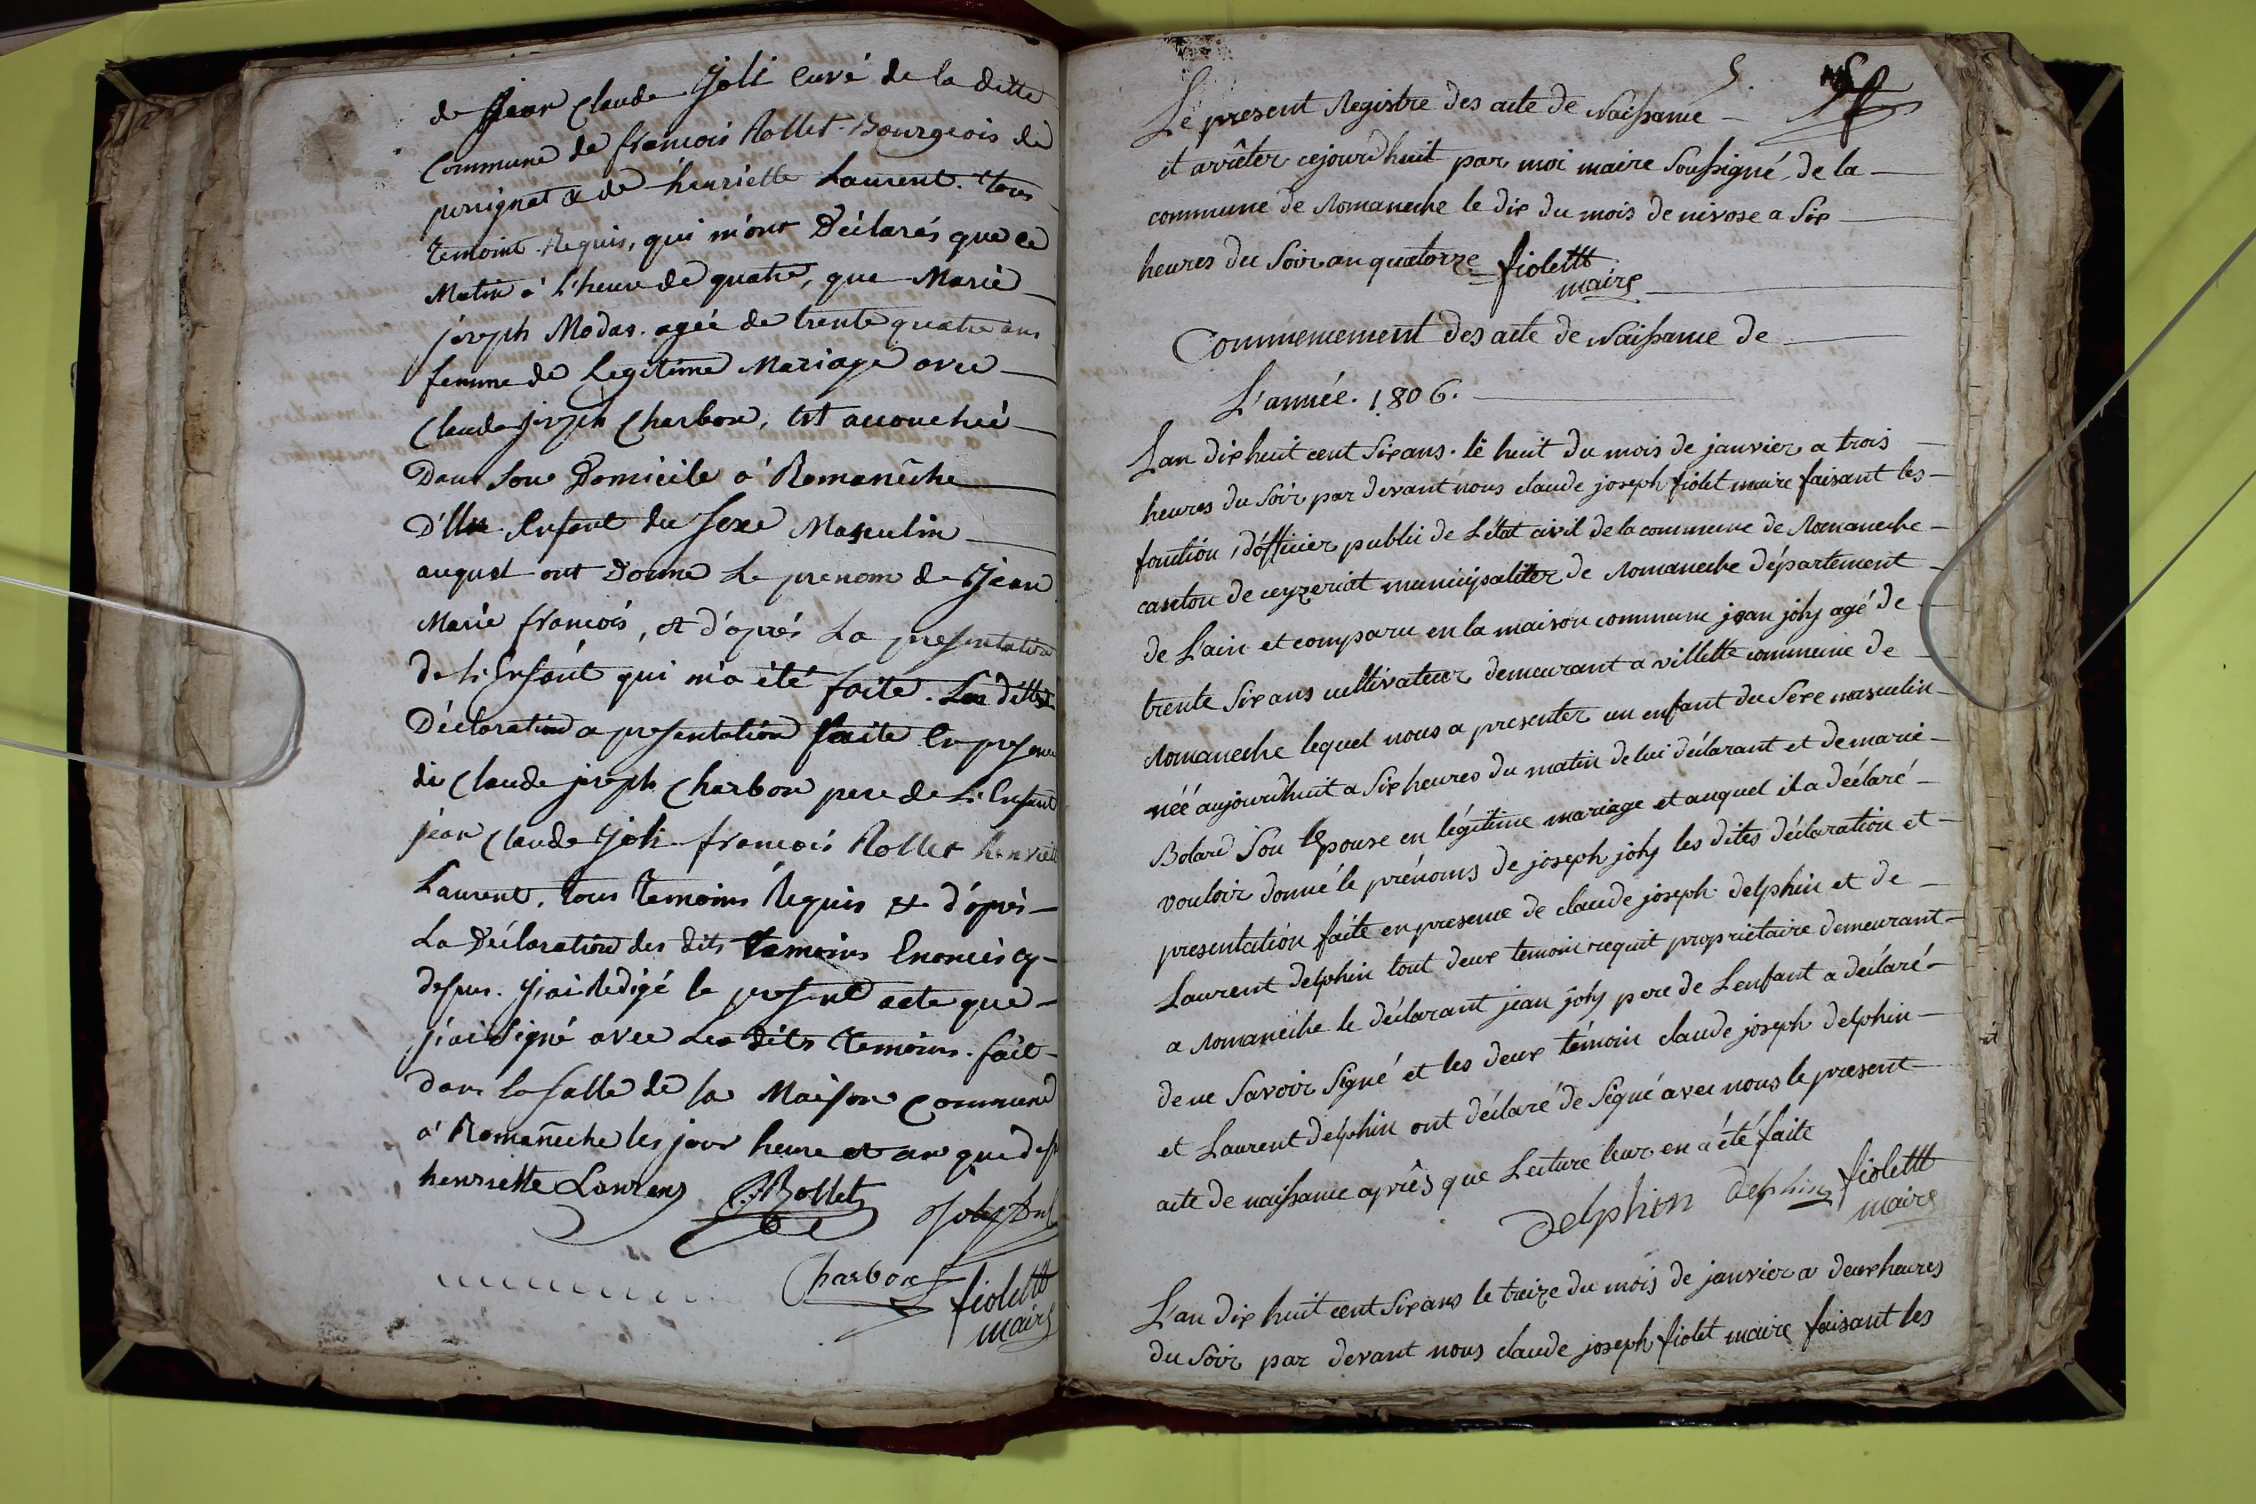 de jean Claude Joli Curé de la ditte
Commune de francois Rollet Bourgeois de
perrignat & de henriette Laurent. tous
temoint Requis, qui m'ont Déclarés que ce
Matin à l'heure de quatre, que Marie
joseph Modas. agée de trente quatre ans
femme de Legitime Mariage avec
Claude joseph Charbon, est accouchée
Dans Son Domicile à Romanêche
D'Un Enfant du Sexe Masculin
auquel ont Donné Le prenom de Jean
Marie francois, et d'après La presentation
de L'Enfant qui m'a été faite. Les dittes
Déclaration a presentation faite En presence
de Claude joseph Charbon pere de L'Enfant
jean Claude Joli francois Rollet henriette
Laurent, tous temoins Requis et d'après
La Déclaration des dits temoins Enoncés cy
dessus. j'ai Redigé le present acte que
j'ai signé avec Les dits temoins. fait
dans la salle de la Maison Commune
à Romanêche les jour heure et an que dess
henriette Laurens Rollet Joly
Charbon fiolettt
maire
5.
Le present Registre des acte de Naissance
et arrêter cejourdhuit par moi maire Soussigné, de la
commune de Romaneche le dix du mois de nivose a Six
heures du Soir an quatorze fiolettt
maire
Commencement des acte de Naissance de
L'année. 1806.
Lan dix huit cent Six ans. le huit du mois de janvier a trois
heures du Soir par devant nous claude joseph fiolet maire faisant les
fontion, d'officier public de L'état civil de la commune de Romaneche
canton de ceyzeriat municipaliter de Romaneche département
de L'ain et comparu en la maison commune jean joly agé de
trente Six ans cultivateur demeurant a villette commune de
Romaneche lequel nous a presenter un enfant du Sexe masculin
née aujourdhuit a Six heures du matin de lui déclarant et de marie
Bolard Son Epouse en légitime mariage et auquel il a déclaré
vouloir donné le prénoms de joseph joly les dites déclaration et
presentation faite en presence de claude joseph delphin et de
Laurent delphin tout deux temoin requit proprietaire demeurant
a Romaneche le déclarant jean joly pere de L'enfant a déclaré
de ne Savoir Signé et les deux témoin claude joseph delphin
et Laurent delphin ont déclaré de Signé avec nous le present
acte de naissance aprês que Lecture leur en a été faite
delphin delphin fiolettt
maire
L'an dix huit cent Six ans le treize du mois de janvier a deux heures
du Soir par devant nous claude joseph fiolet maire faisant les